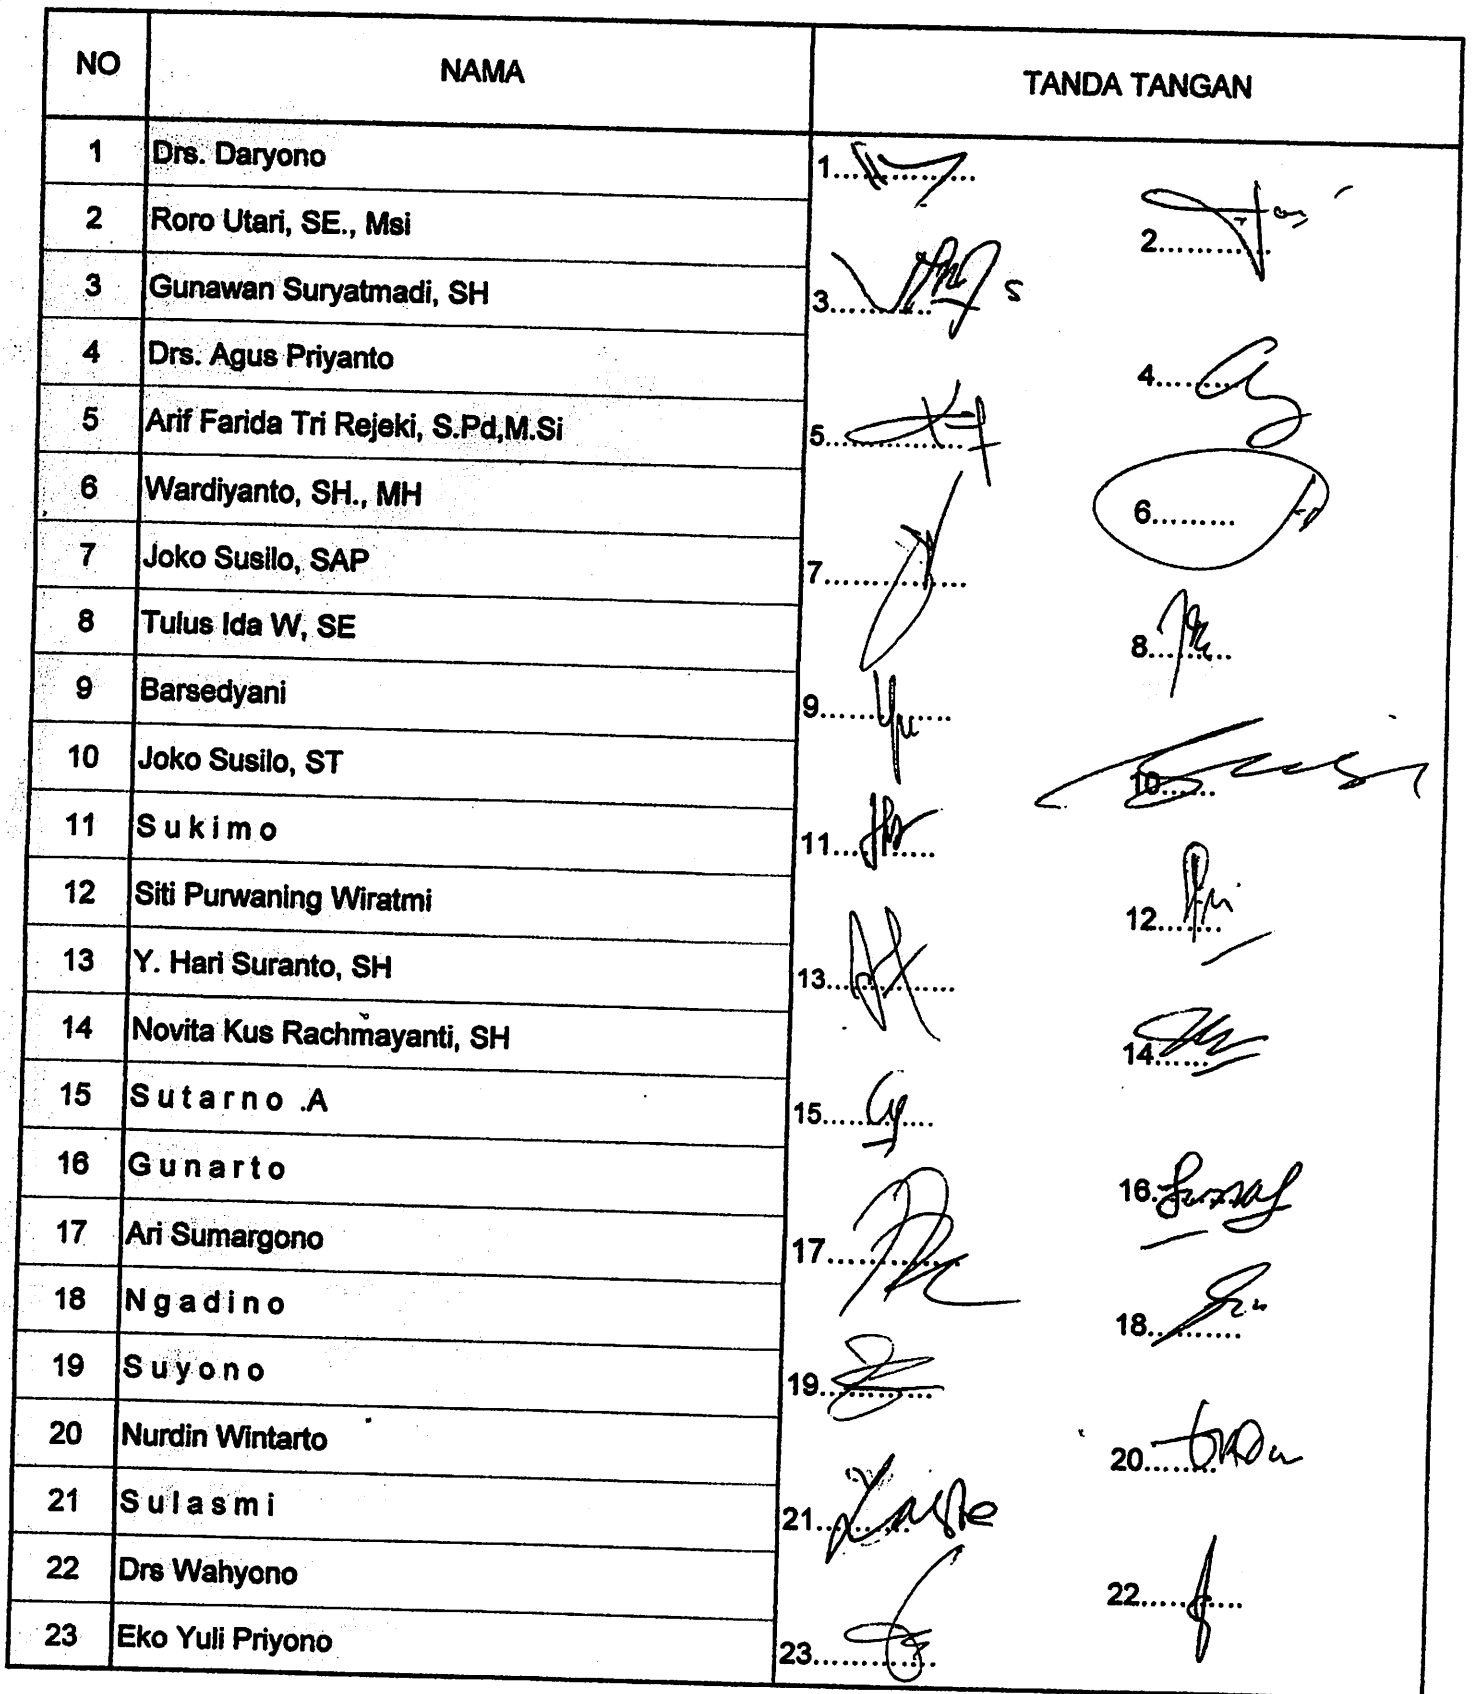 NO NAMA TANDA TANGAN
1 Drs. Daryono 1................
2 Roro Utari, SE., Msi 2...............
3 Gunawan Suryatmadi, SH 3..............
4 Drs. Agus Priyanto 4..........
5 Arif Farida Tri Rejeki, S.Pd,M.Si 5................
6 Wardiyanto, SH., MH 6.........
7 Joko Susilo, SAP 7................
8 Tulus Ida W, SE 8.........
9 Barsedyani 9...............
10 Joko Susilo, ST 10.......
11 S u k i m o 11............
12 Siti Purwaning Wiratmi 12........
13 Y. Hari Suranto, SH 13..............
14 Novita Kus Rachmayanti, SH 14.......
15 S u t a r n o .A 15............
16 G u n a r t o 16.
17 Ari Sumargono 17...............
18 N g a d i n o 18..........
19 S u y o n o 19.............
20 Nurdin Wintarto 20.........
21 S u l a s m i 21..........
22 Drs Wahyono 22...........
23 Eko Yuli Priyono 23.............